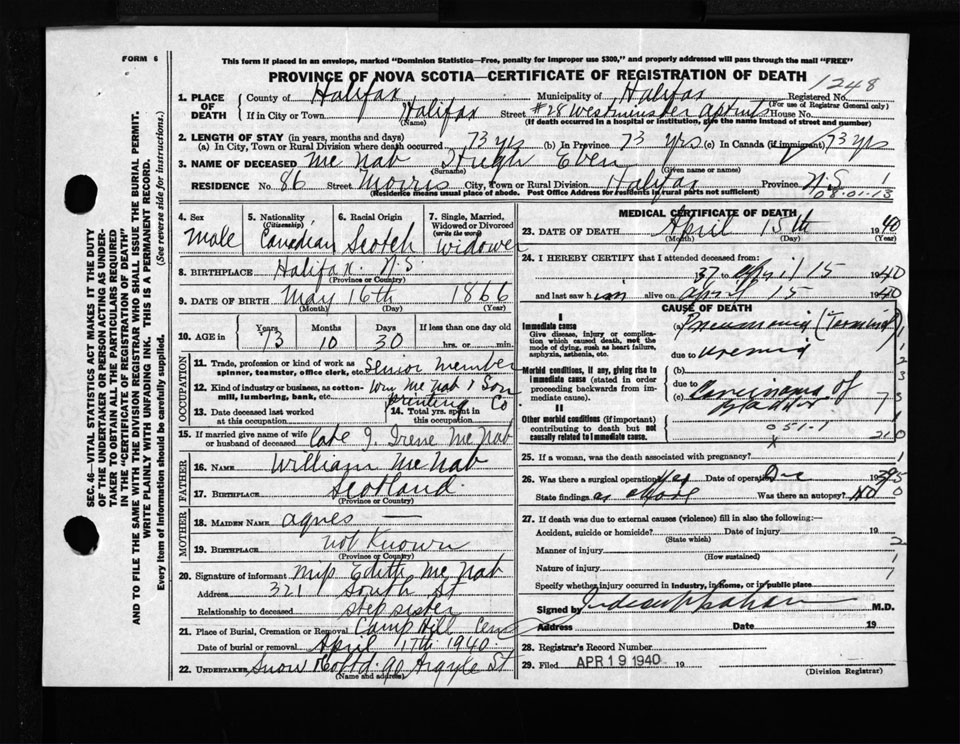 FORM 6
This form if placed in an envelope, marked "Dominion Statistics—Free, penalty for improper use $300," and properly addressed will pass through the mail "FREE"
PROVINCE OF NOVA SCOTIA—CERTIFICATE OF REGISTRATION OF DEATH
1248
1. PLACE OF DEATH County of Halifax Municipality of Halifax Registered No.
(For use of Registrar General only)
If in City or Town Halifax Street #28 Westminster Aptmts House No.
(Name) (If death occurred in a hospital or institution, give the name instead of street and number)
2. LENGTH OF STAY (in years, months and days)
(a) In City, Town or Rural Division where death occurred 73 yrs (b) In Province 73 yrs (c) In Canada (if immigrant) 73 yrs
3. NAME OF DECEASED Mc Nab Hugh Even
(Surname) (Given name or names)
RESIDENCE No. 86 Street Morris City, Town or Rural Division Halifax Province N.S. 1
(Residence means usual place of abode. Post Office Address for residents in rural parts not sufficient) 08.01.13
4. Sex Male
5. Nationality (Citizenship) Canadian
6. Racial Origin Scotch
7. Single, Married, Widowed or Divorced (write the word) Widower
8. BIRTHPLACE Halifax N.S.
(Province or Country)
9. DATE OF BIRTH May 16th 1866
(Month) (Day) (Year)
10. AGE in Years 73 Months 10 Days 30 If less than one day old hrs. or min.
OCCUPATION
11. Trade, profession or kind of work as spinner, teamster, office clerk, etc. Senior member
12. Kind of industry or business, as cotton-mill, lumbering, bank, etc. Wm Mc Nab & Son Printing Co.
13. Date deceased last worked at this occupation
14. Total yrs. spent in this occupation
15. If married give name of wife or husband of deceased Late J. Irene Mc Nab
FATHER
16. NAME William Mc Nab
17. BIRTHPLACE Scotland.
(Province or Country)
MOTHER
18. MAIDEN NAME Agnes —
19. BIRTHPLACE not Known
(Province or Country)
20. Signature of informant Miss Edith Mc Nab
Address 321 South St
Relationship to deceased step sister
21. Place of Burial, Cremation or Removal Camp Hill Cem
Date of burial or removal April 17th 1940
22. UNDERTAKER Snow Co Ltd. 90 Argyle St
(Name and address)
MEDICAL CERTIFICATE OF DEATH
23. DATE OF DEATH April 15th 1940
(Month) (Day) (Year)
24. I HEREBY CERTIFY that I attended deceased from:
37 April 15 1940
and last saw him alive on April 15 1940
CAUSE OF DEATH
I
Immediate cause
Give disease, injury or complication which caused death, not the mode of dying, such as heart failure, asphyxia, asthenia, etc.
(a) Pneumonia (Terminal)
due to Uremia
Morbid conditions, if any, giving rise to immediate cause (stated in order proceeding backwards from immediate cause).
(b)
due to
(c) Carcinoma of bladder
II
Other morbid conditions (if important) contributing to death but not causally related to immediate cause.
051-1
x
25. If a woman, was the death associated with pregnancy?
26. Was there a surgical operation? Yes Date of operation Dec 1939
State findings as above Was there an autopsy? No
27. If death was due to external causes (violence) fill in also the following:—
Accident, suicide or homicide? Date of injury 19
(State which)
Manner of injury
(How sustained)
Nature of injury
Specify whether injury occurred in Industry, in home, or in public place
Signed by M.D.
Address Date 19
28. Registrar's Record Number
29. Filed APR 19 1940 19
(Division Registrar)
SEC. 46—VITAL STATISTICS ACT MAKES IT THE DUTY
OF THE UNDERTAKER OR PERSON ACTING AS UNDER-
TAKER TO OBTAIN ALL THE PARTICULARS REQUIRED
IN THE "CERTIFICATE OF REGISTRATION OF DEATH"
AND TO FILE THE SAME WITH THE DIVISION REGISTRAR WHO SHALL ISSUE THE BURIAL PERMIT.
WRITE PLAINLY WITH UNFADING INK. THIS IS A PERMANENT RECORD.
Every item of Information should be carefully supplied. (See reverse side for instructions.)